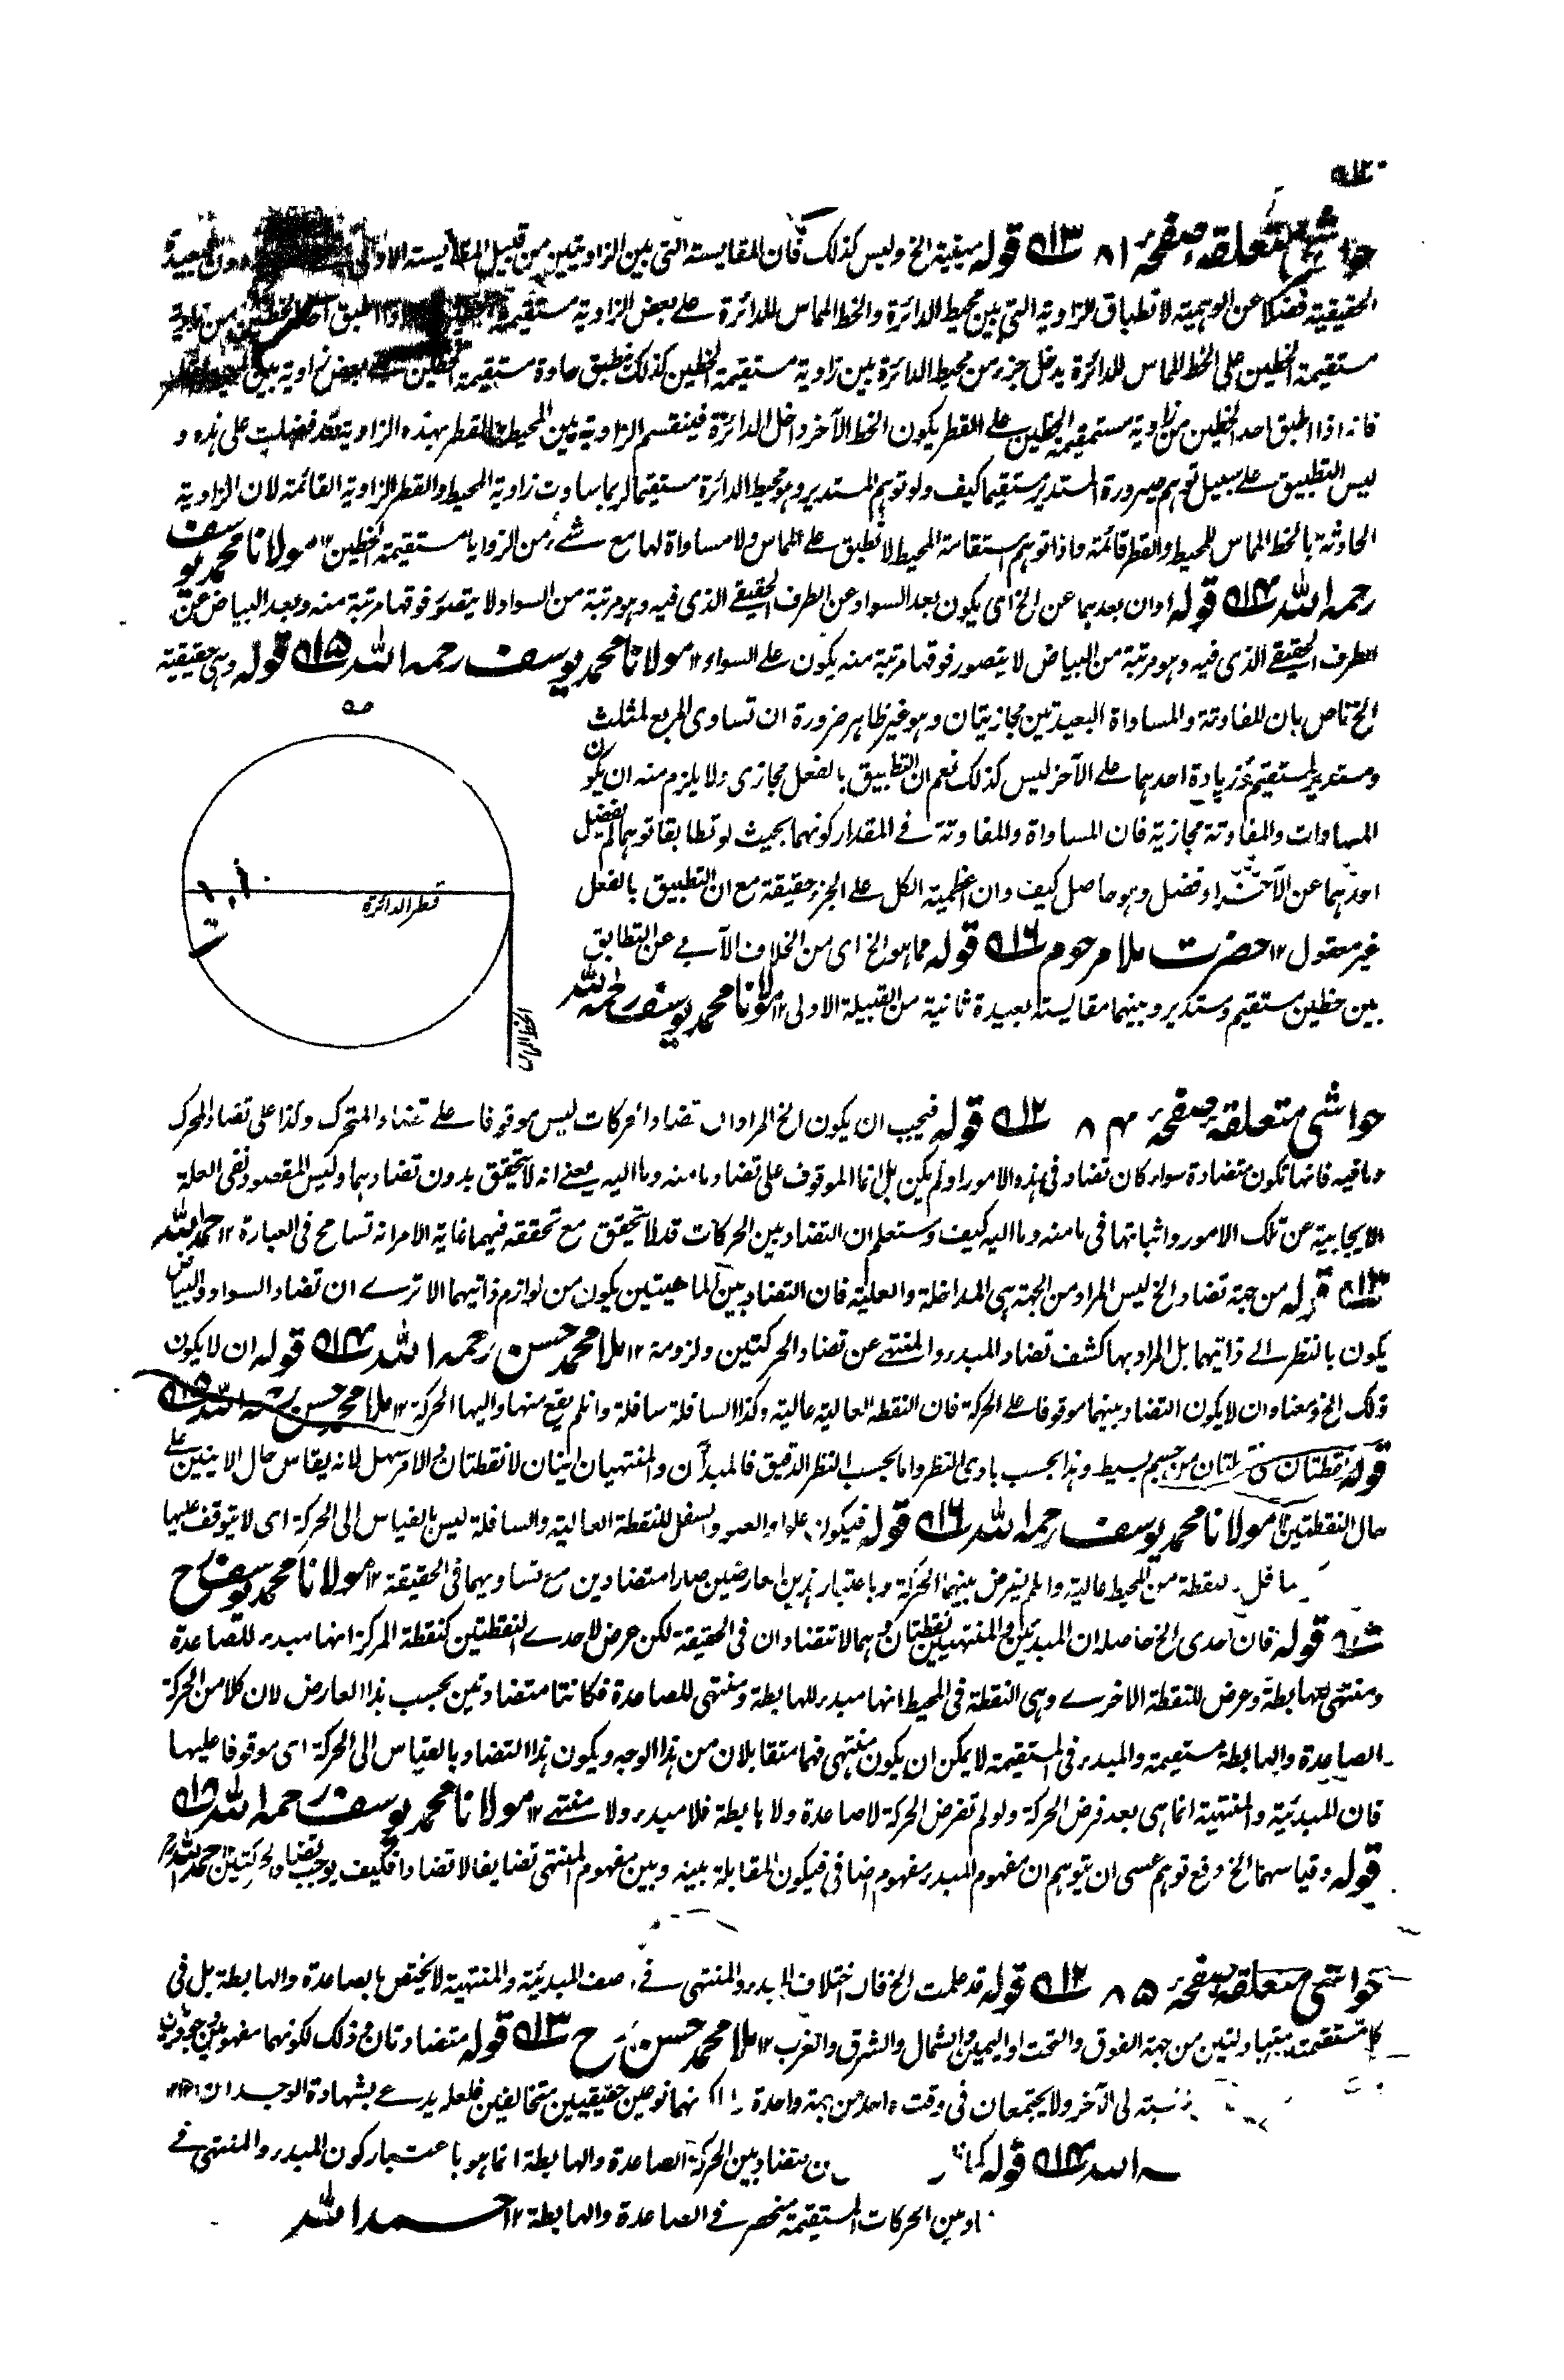 حواشی متعلقہ صفحہ ٨١ قوله بقية الخ وليس كذلك فان المقايسة التي بين الزاويتين من قبيل المقايسة الاولى دون البعيدة
الحقيقية فضلا عن الوهمية لانطباق الزاوية التي بين محيط الدائرة والخط المماس للدائرة على بعض الزاوية مستقيمة انطبق احد الخطين من زاوية
مستقيمة الخطين على الخط المماس للدائرة يدخل جزء من محيط الدائرة بين زاوية مستقيمة الخطين كذلك ينطبق حادة مستقيمة الخطين على بعض زاوية بين
فانه اذا انطبق احد الخطين من زاوية مستقيمة الخطين على القطر يكون الخط الآخر داخل الدائرة فينقسم الزاوية بين المحيط والقطر بهذه الزاوية فقد فضلت على هذه و
ليس التطبيق على سبيل توهم صيرورة المستدير مستقيما كيف ولو توهم المستدير وهو محيط الدائرة مستقيما لربما ساوت زاوية المحيط والقطر الزاوية القائمة لان الزاوية
الحادثة بالخط المماس للمحيط والقطر قائمة واذا توهم استقامة المحيط لانطبق على المماس ولا مساواة لها مع شئ من الزوايا مستقيمة الخطين ١٢ مولانا محمد يوسف
رحمه الله قوله او ان بعدهما عن الخ اى يكون بعد السواد عن الطرف الحقيقے الذى فيه وهو مرتبة من السواد لا يتصور فوقها مرتبة منه وبعد البياض عن
الطرف الحقيقے الذى فيه وهو مرتبة من البياض لا يتصور فوقها مرتبة منه يكون على السواء ١٢ مولانا محمد يوسف رحمه الله قوله وهى حقيقية
الخ ناص بان المفاوتة والمساواة البعيدتين مجازيتان وهو غير ظاهر ضرورة ان تساوى المربع لمثلث
ومستدير لمستقيم وزيادة احدهما على الآخر ليس كذلك نعم ان التطبيق بالفعل مجازى ولا يلزم منه ان يكون
المساوات والمفاوتة مجازية فان المساواة والمفاوتة فى المقدار كونهما بحيث لو تطابقا توهما لم يفضل
احدهما عن الآخر او فضل وهو حاصل كيف وان اعظمية الكل على الجزء حقيقة مع ان التطبيق بالفعل
غير معقول ١٢ حضرت ملا مرحوم قوله مما هو الخ اى من الخلاف الآبے عن التطابق
بين خطين مستقيم ومستدير وبينهما مقايسة بعيدة ثانية من القبيلة الاولى ١٢ مولانا محمد يوسف رحمه الله
قطر الدائرة
حواشی متعلقہ صفحہ ٨٤ قوله فيجب ان يكون الخ المراد ان تضاد الحركات ليس موقوفا على تضاد المتحرك وكذا على تضاد المحرك
وما فيه فانها تكون متضادة سواء كان تضاد فى هذه الامور او لم يكن بل انما الموقوف على تضاد ما منه وما اليه يعنے انه لا يتحقق بدون تضادهما وليس المقصود نفى العلة
الايجابية عن تلك الامور واثباتها فى ما منه وما اليه كيف وستعلم ان التضاد بين الحركات قد لا يتحقق مع تحققه فيهما غاية الامر انه تسامح فى العبارة ١٢ حمد الله
قوله من جهة تضاد الخ ليس المراد من الجهة هى المداخلة والعلية فان التضاد بين الماهيتين يكون من لوازم ذاتيهما الا ترے ان تضاد السواد والبياض
يكون بالنظر الے ذاتيهما بل المراد بها كشف تضاد المبدء والمنتهے عن تضاد الحركتين ولزومه ١٢ ملا محمد حسن رحمه الله قوله ان لا يكون
ذلك الخ ومعناه ان لا يكون التضاد بينهما موقوفا على الحركة فان النقطة العالية عالية وكذا السافلة سافلة وان لم يقع منها واليها الحركة ١٢ ملا محمد حسن رحمه الله
قوله نقطتان من جسم بسيط وهذا بحسب بادى النظر واما بحسب النظر الدقيق فالمبدآن والمنتهيان اينان لا نقطتان والامر سهل لانه يقاس حال الاينين على
حال النقطتين ١٢ مولانا محمد يوسف رحمه الله قوله فيكون علوا والعلو والسفل للنقطة العالية والسافلة ليس بالقياس الى الحركة اى لا يتوقف عليها
نقطة من المحيط عالية وان لم يفرض بينهما الحركة وباعتبار هذين العارضين صارا متضادين مع تساويهما فى الحقيقة ١٢ مولانا محمد يوسف رح
قوله فان احدى الخ حاصله ان المبدئين والمنتهيين نقطتان وهما لا تتضادان فى الحقيقة لكن عرض لاحدے النقطتين كنقطة المركز انها مبدء للصاعدة
ومنتهى للهابطة وعرض للنقطة الاخرے وهى النقطة فى المحيط انها مبدء للهابطة ومنتهى للصاعدة فكانتا متضادتين بحسب هذا العارض لان كلا من الحركة
الصاعدة والهابطة مستقيمة والمبدء فى المستقيمة لا يمكن ان يكون منتهى فهما متقابلان من هذا الوجه ويكون هذا التضاد بالقياس الى الحركة اى موقوفا عليها
فان المبدئية والمنتهية انما هى بعد فرض الحركة ولو لم تفرض الحركة لا صاعدة ولا هابطة فلا مبدء ولا منتهے ١٢ مولانا محمد يوسف رحمه الله
قوله وقياسهما الخ دفع توهم عسى ان يتوهم ان مفهوم المبدء مفهوم اضافى فيكون المقابلة بينه وبين مفهوم المنتهى تضايفا لا تضادا فكيف يوجب تضاد الحركتين ١٢ حمد الله
حواشی متعلقہ صفحہ ٨٥ قوله قد علمت الخ فان اختلاف المبدء والمنتهى فے وصف المبدئية والمنتهية لا يختص بالصاعدة والهابطة بل فى
كل مستقيمتين متبادلتين من جهة الفوق والتحت او اليمين والشمال والشرق والغرب ١٢ ملا محمد حسن رح قوله متضادتان وذلك لكونهما مفهومين وجوديين
نسبة الى الآخر ولا يجتمعان فى وقت واحد من جهة واحدة نهما نوعين حقيقيين متخالفين فلعله يدعے بشهادة الوجدان
الله قوله كما ن تضاد بين الحركة الصاعدة والهابطة انما هو باعتبار كون المبدء والمنتهى فے
اد بين الحركات المستقيمة منحصر فے الصاعدة والهابطة ١٢ حمد الله